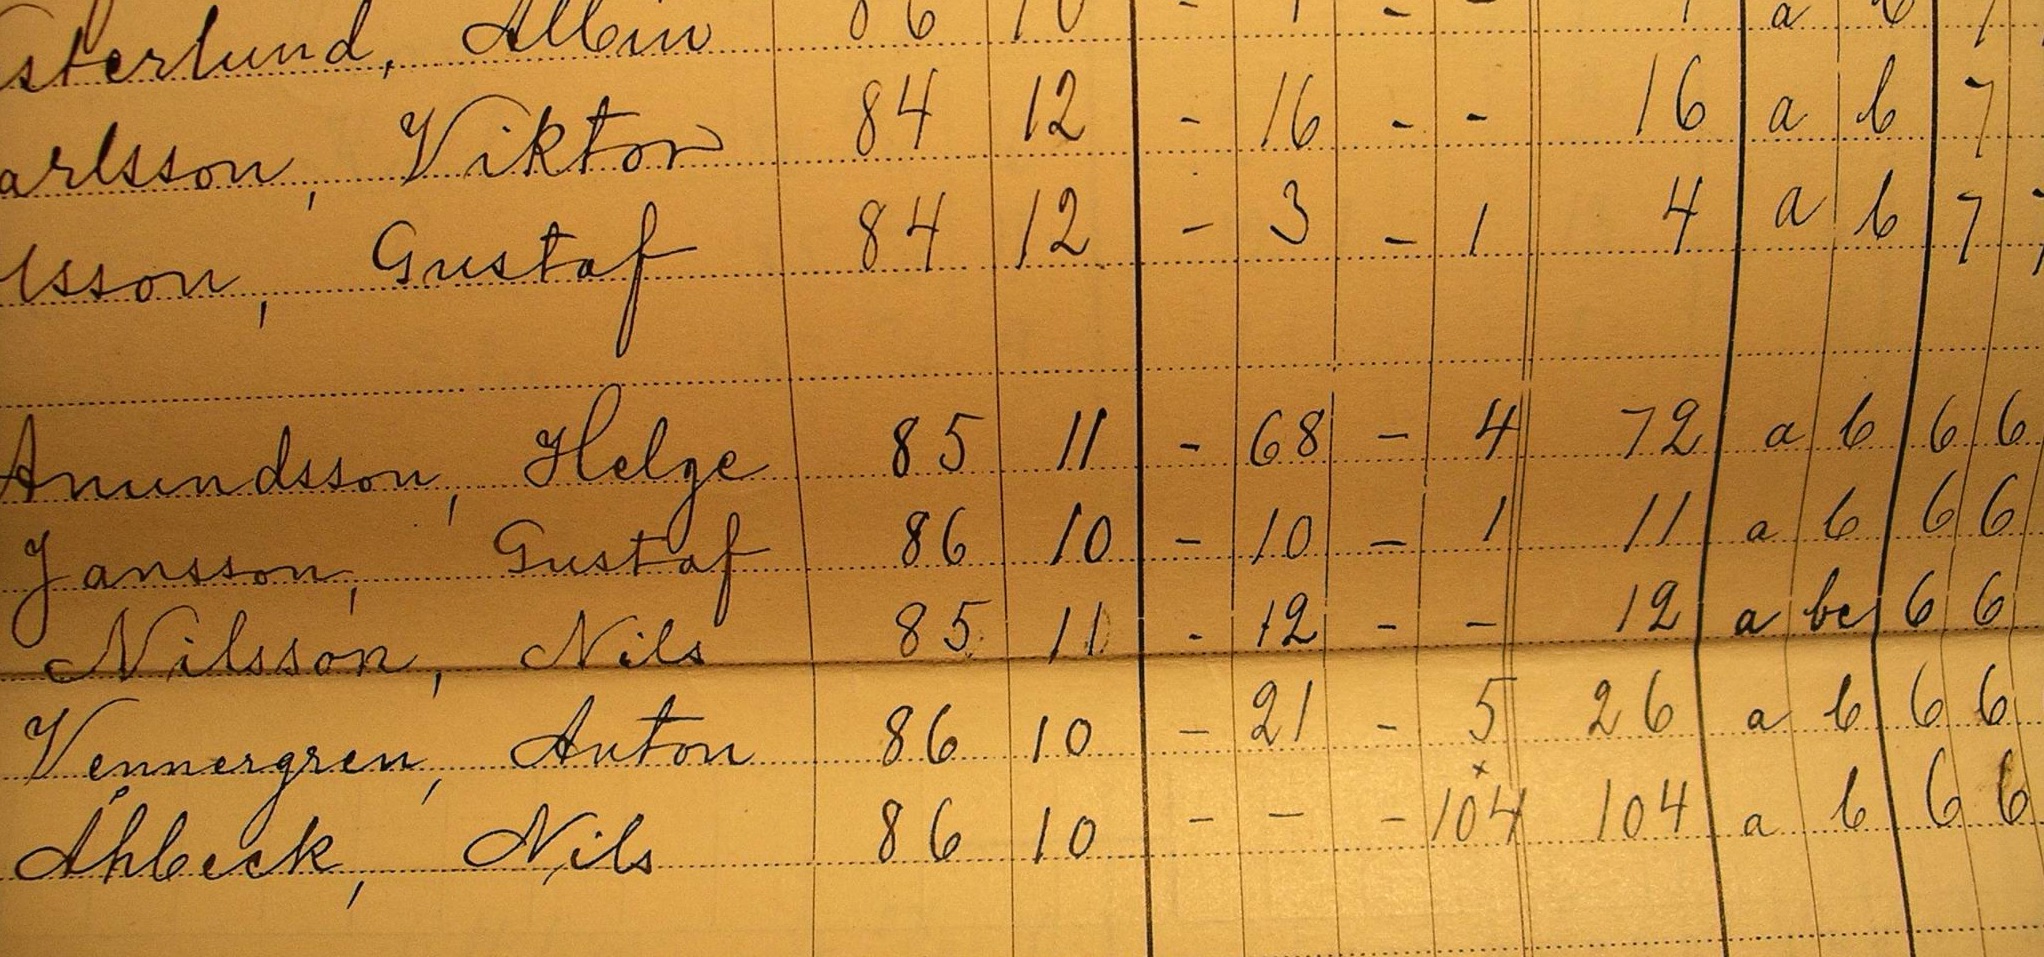 sterlund, Albin 86 10 - 1 - - 1 a b 7
arlsson, Viktor 84 12 - 16 - - 16 a b 7
lsson, Gustaf 84 12 - 3 - 1 4 a b 7 7
Amundsson, Helge 85 11 - 68 - 4 72 a b 6 6
Jansson, Gustaf 86 10 - 10 - 1 11 a b 6 6
Nilsson, Nils 85 11 - 12 - - 12 a bc 6 6
Vennergren, Anton 86 10 - 21 - 5 26 a b 6 6
Åhbeck, Nils 86 10 - - - 104 104 a b 6 6